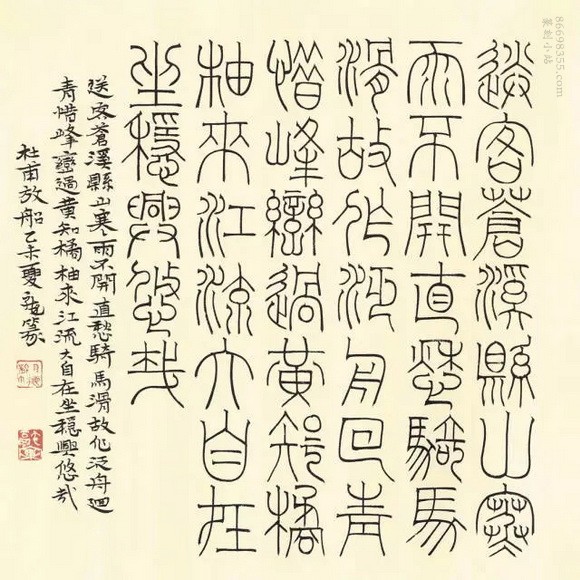 送客蒼溪縣山寒
雨不開直愁騎馬
滑故作泛舟回青
惜峰巒過黃知橘
柚來江流大自在
坐穩興悠哉
送客蒼溪縣山寒雨不開直愁騎馬滑故作泛舟迴
青惜峰巒過黃知橘柚來江流大自在坐穩興悠哉
杜甫放船乙未夏篆
86698355.com
小站